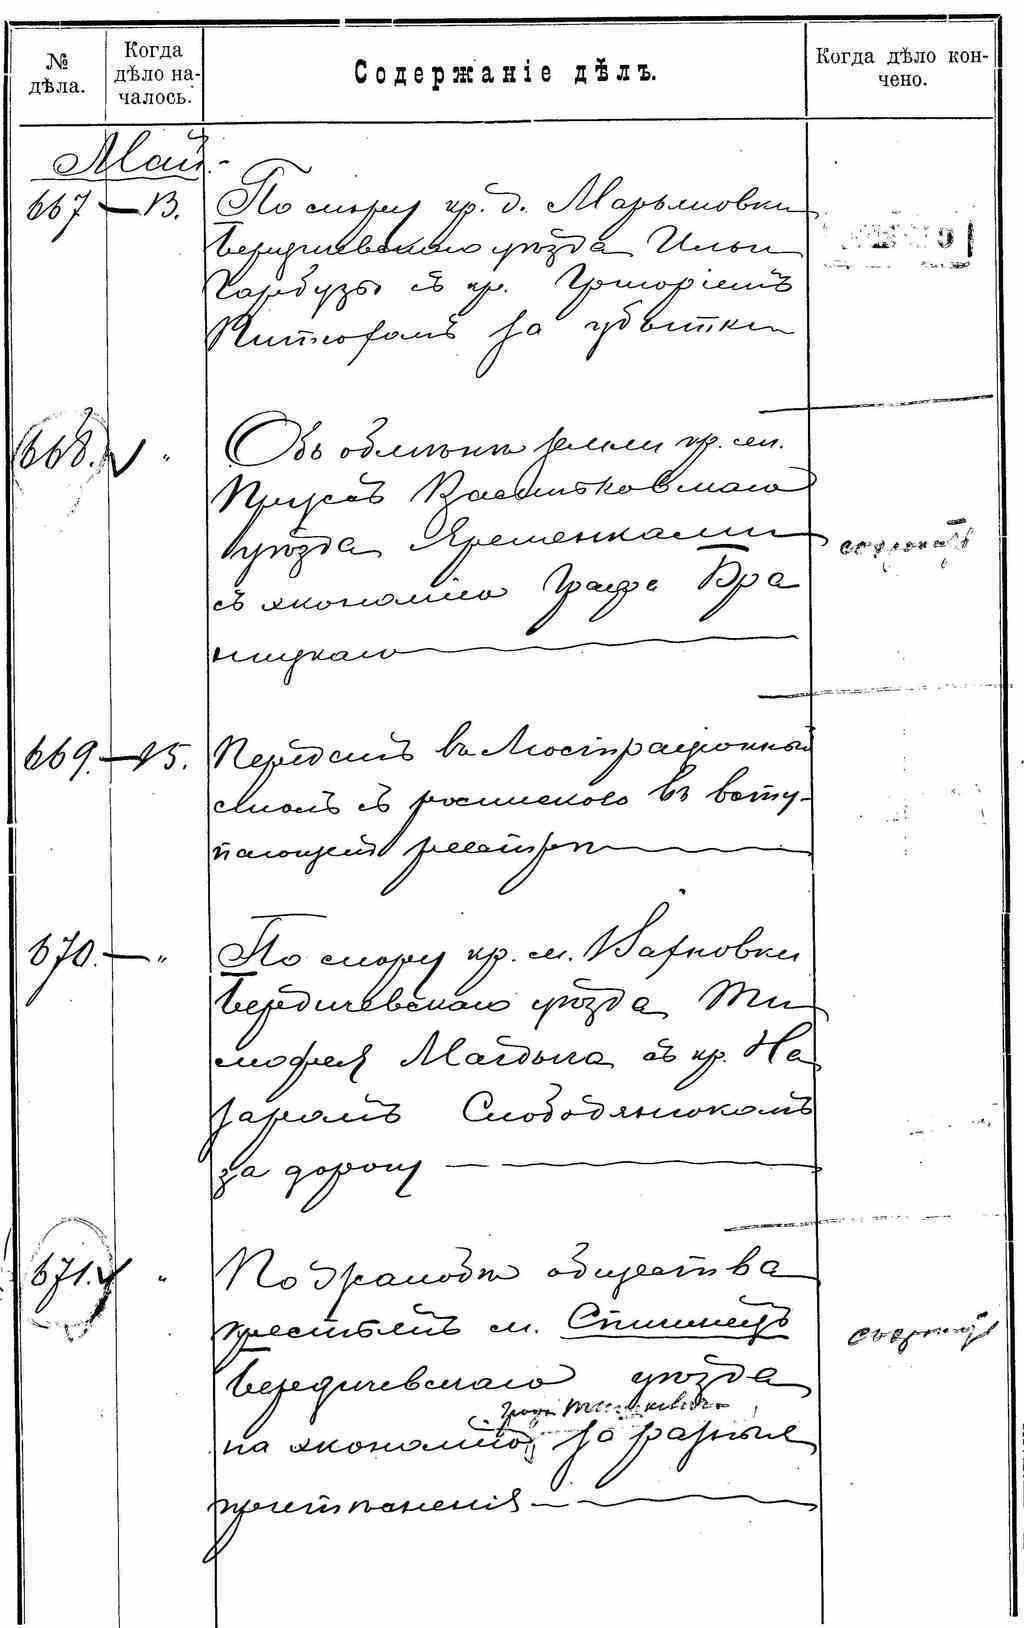 № дѣла.
Когда дѣло на-
чалось.
Содержаніе дѣлъ.
Когда дѣло кон-
чено.
Май.
667 — 13. По спору кр. д. Марьяновки
Бердичевскаго уѣзда Ильи
Гарбузы съ кр. Григоріемъ
за убытки
668. " Объ обмѣнѣ земли кр. м.
Васильковскаго
уѣзда Яременками
съ экономіею Графа Бра
ницкаго
сохранить
669. — 15. Передать въ Люстраціонный
столъ съ роспискою въ всту-
пающемъ реестрѣ
670. — " По спору кр. м.
Бердичевскаго уѣзда Ти
мофея съ кр. На
заромъ Слободянюкомъ
за дорогу
671. " По жалобѣ общества
крестьянъ м. Спичинецъ
Бердичевскаго уѣзда
графа Тышкевича
на экономію за разныя
притѣсненія
сохранить